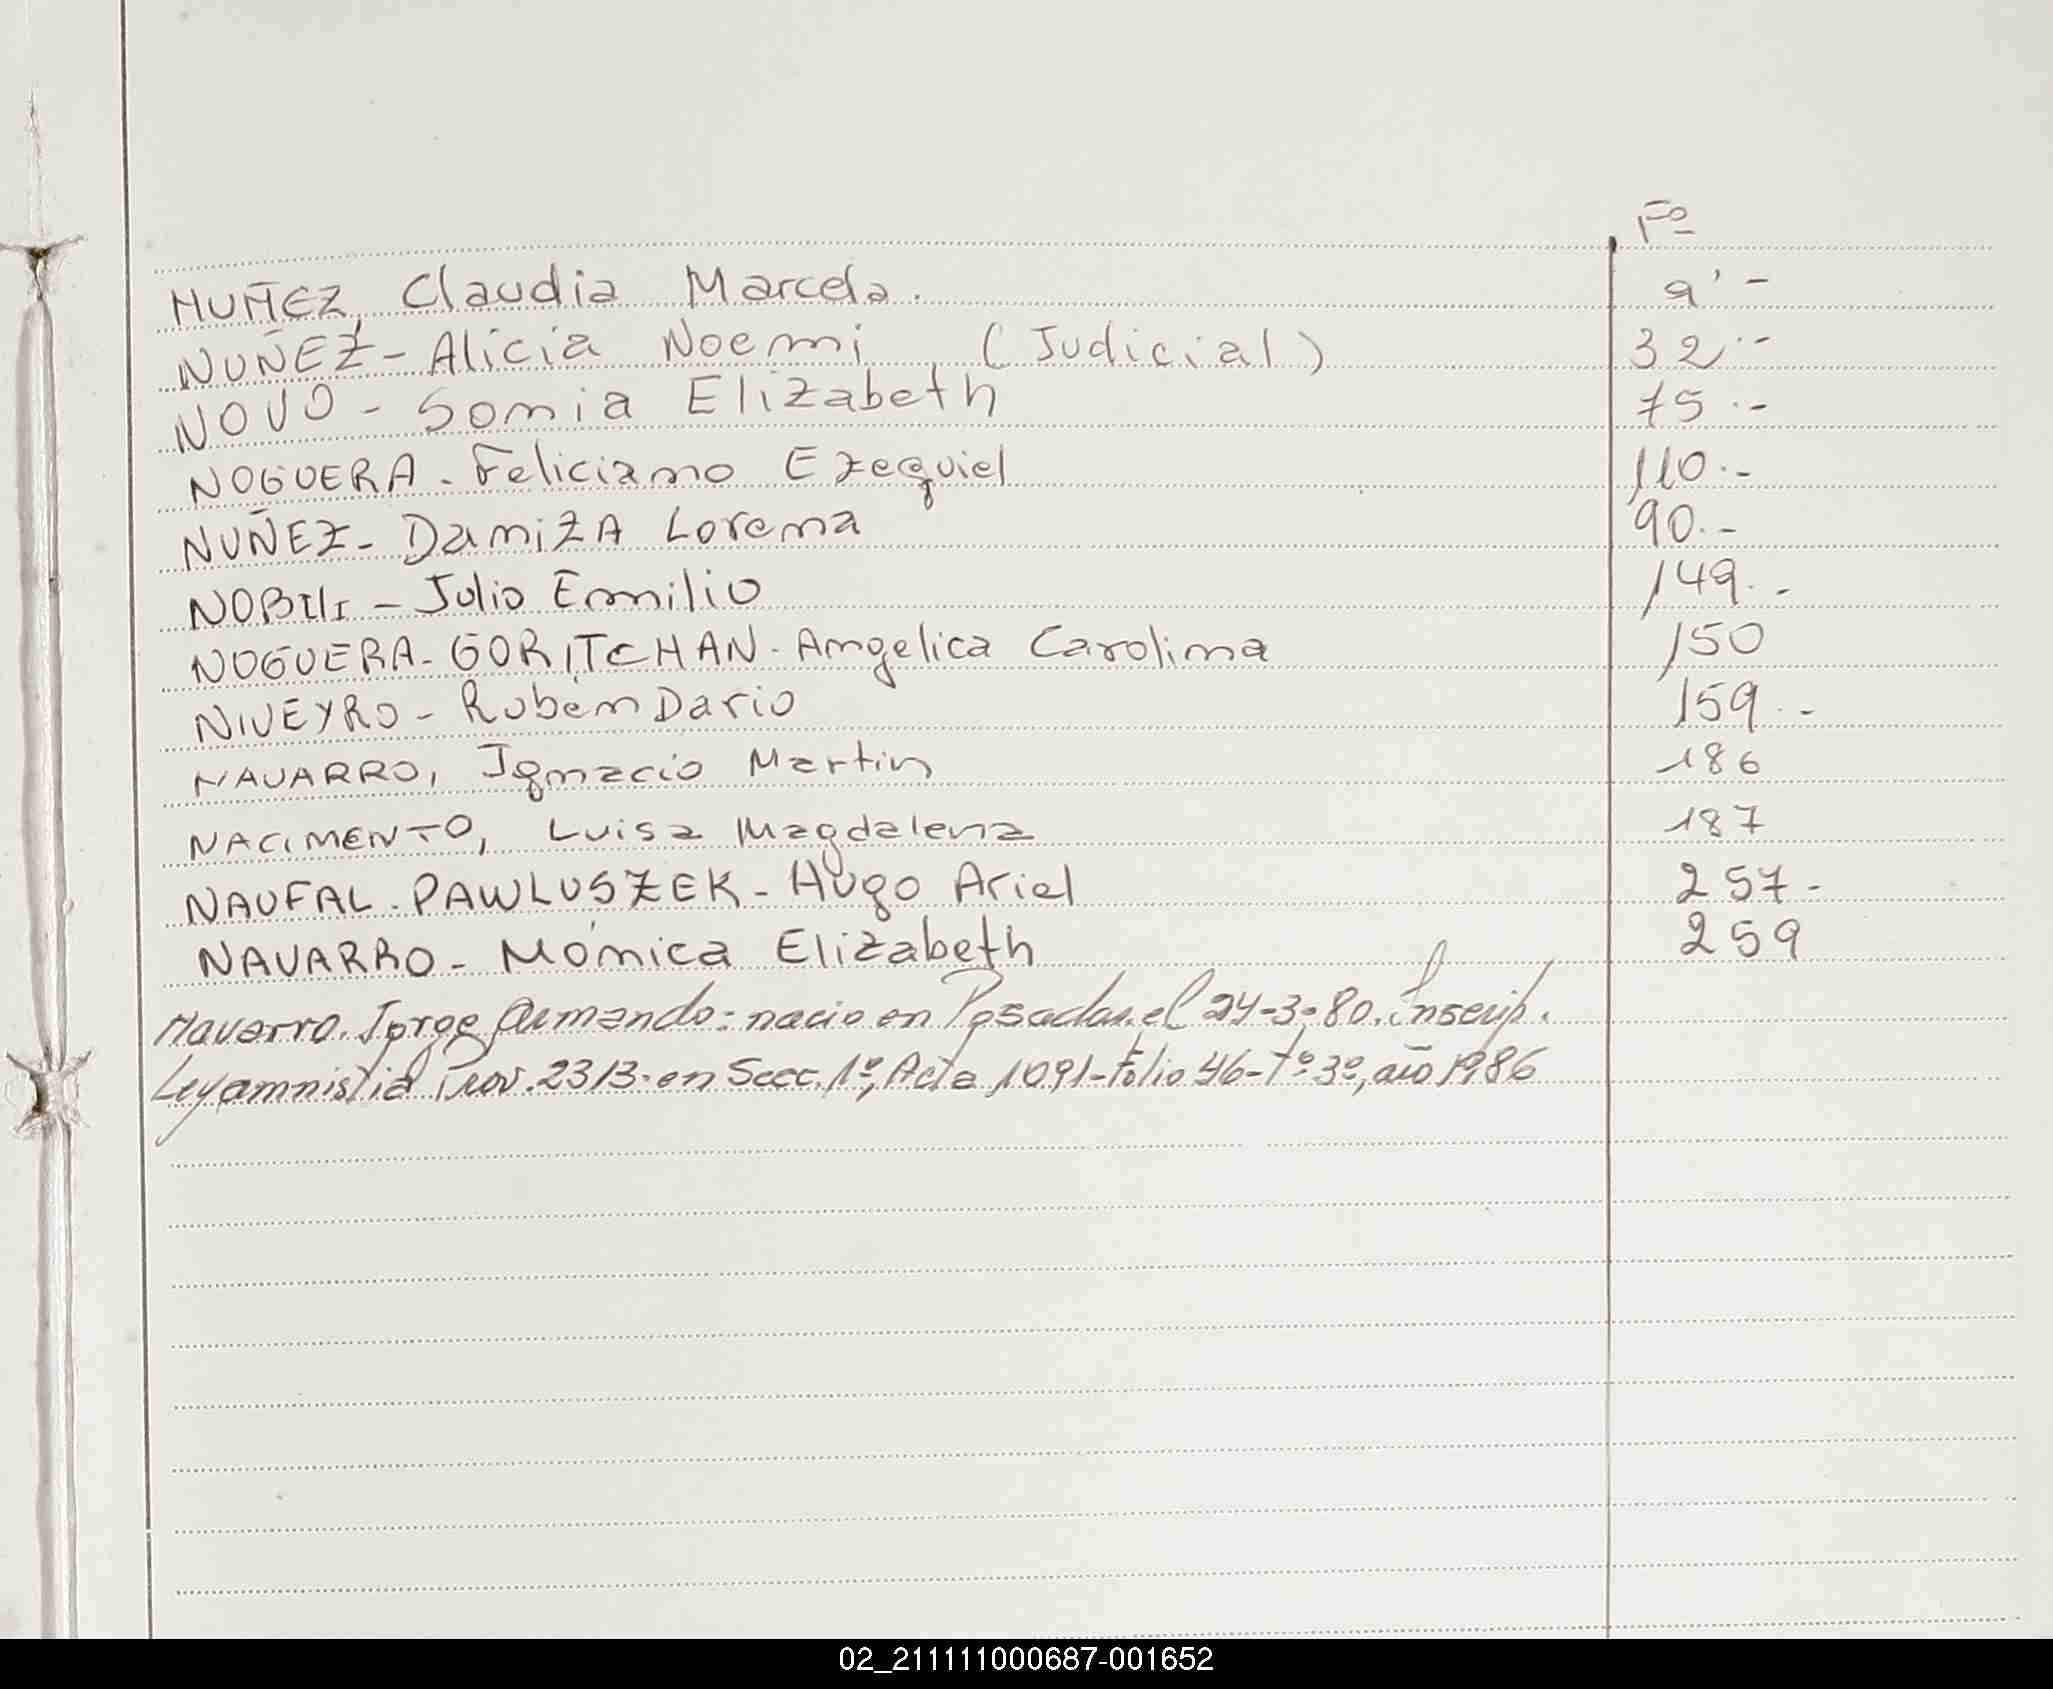 Fº
NUÑEZ, Claudia Marcela. 9'-
NUÑEZ-Alicia Noemi (Judicial) 32.-
NOVO-Sonia Elizabeth 75.-
NOGUERA-Feliciano Ezequiel 110.-
NUÑEZ-DaniZA Lorena 90.-
NOBIlI-Julio Emilio 149.-
NOGUERA-GORITCHAN-Angelica Carolina 150
NIVEYRO-Ruben Dario 159.-
NAVARRO, Ignacio Martin 186
NACIMENTO, Luisa Magdalena 187
NAUFAL.PAWLUSZEK-Hugo Ariel 257-
NAVARRO-Mónica Elizabeth 259
Navarro. Jorge Armando: nacio en Posadas, el 24-3-80. Inscrip.
Ley amnistia Prov. 2313-en Secc. 1º, Acta 1091-Folio 46-Tº 3º, año 1986
02_211111000687-001652